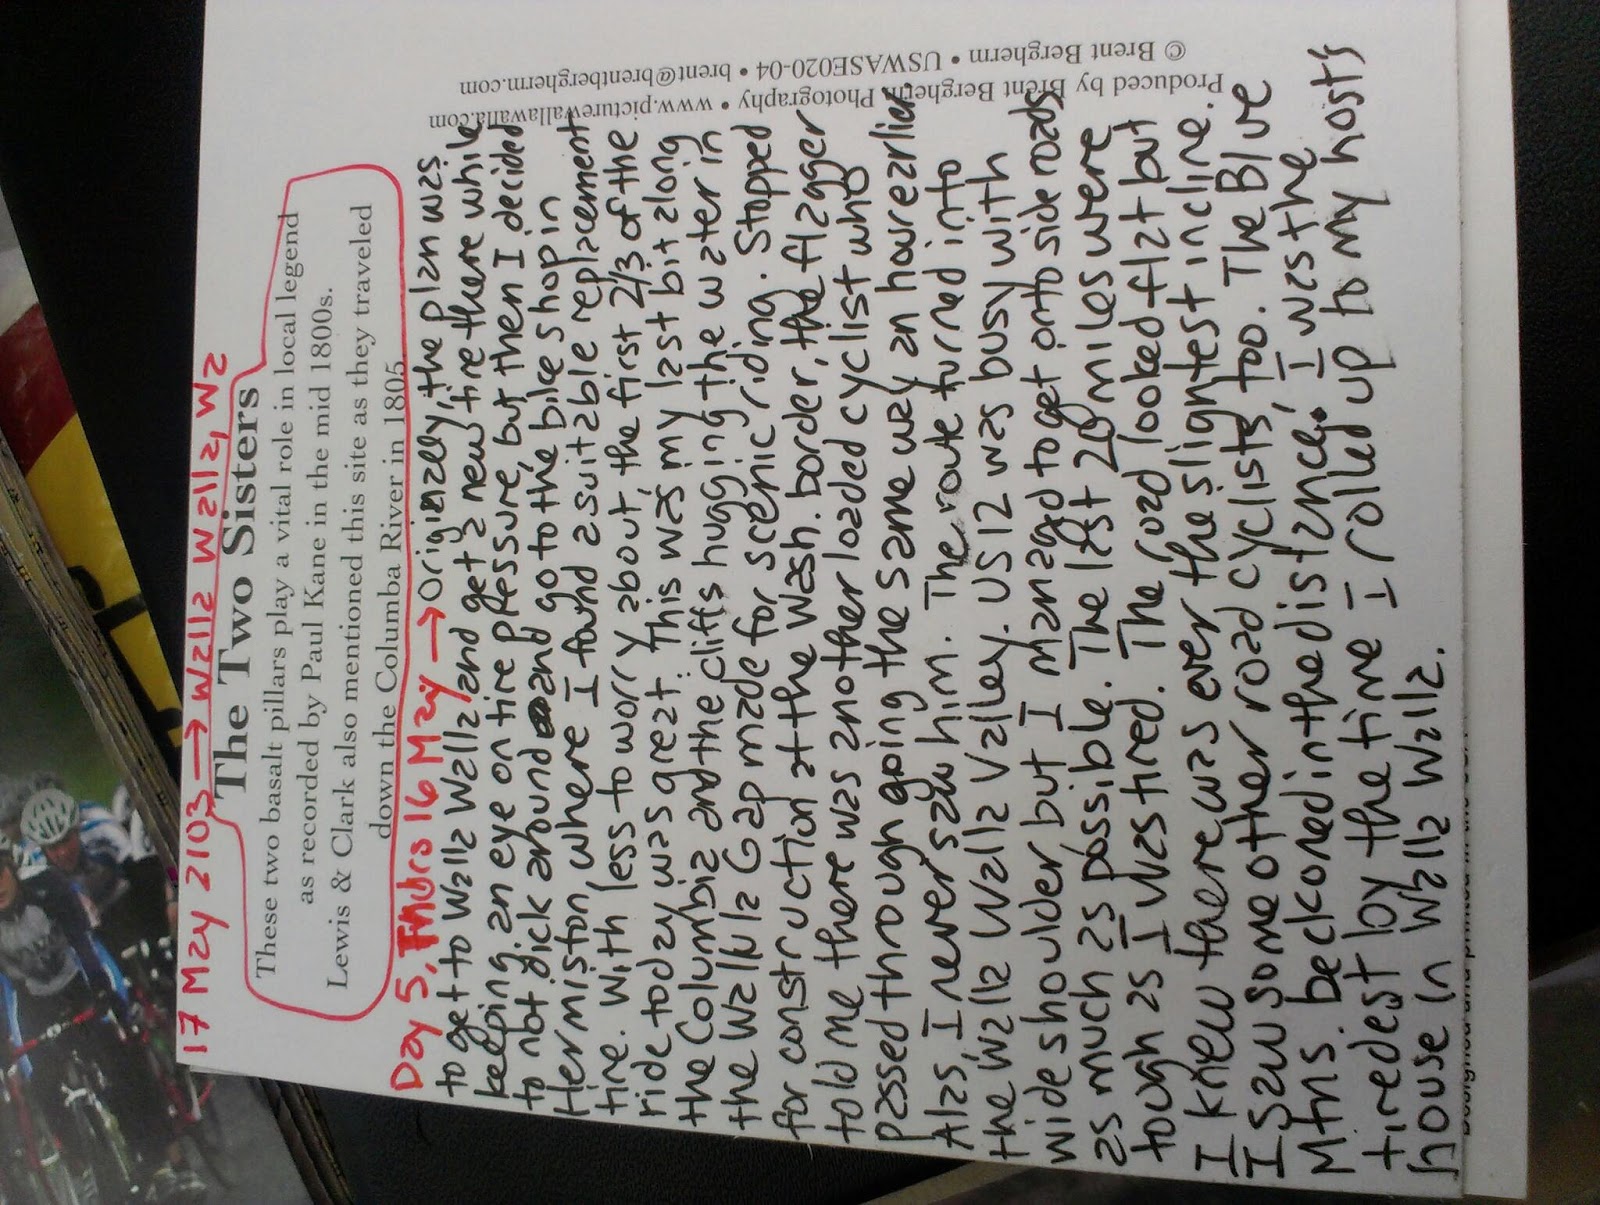 17 May 2103 → Walla Walla, Wa
The Two Sisters
These two basalt pillars play a vital role in local legend
as recorded by Paul Kane in the mid 1800s.
Lewis & Clark also mentioned this site as they traveled
down the Columba River in 1805.
Day 5, Thurs 16 May → Originally, the plan was
to get to Walla Walla and get a new tire there while
keeping an eye on tire pressure, but then I decided
to not dick around and go to the bike shop in
Hermiston where I found a suitable replacement
tire. With less to worry about, the first 2/3 of the
ride today was great. This was my last bit along
the Columbia and the cliffs hugging the water in
the Wallula Gap made for scenic riding. Stopped
for construction at the Wash. border, the flagger
told me there was another loaded cyclist who
passed through going the same way an hour earlier
Alas, I never saw him. The route turned into
the Walla Walla Valley. US 12 was busy with
wide shoulder but I managed to get onto side roads
as much as possible. The last 20 miles were
tough as I was tired. The road looked flat but
I knew there was ever the slightest incline.
I saw some other road cyclists too. The Blue
Mtns. beckoned in the distance. I was the
tiredest by the time I rolled up to my host's
house in Walla Walla.
Produced by Brent Bergherm Photography • www.picturewallawalla.com
© Brent Bergherm • USWASE020-04 • brent@brentbergherm.com